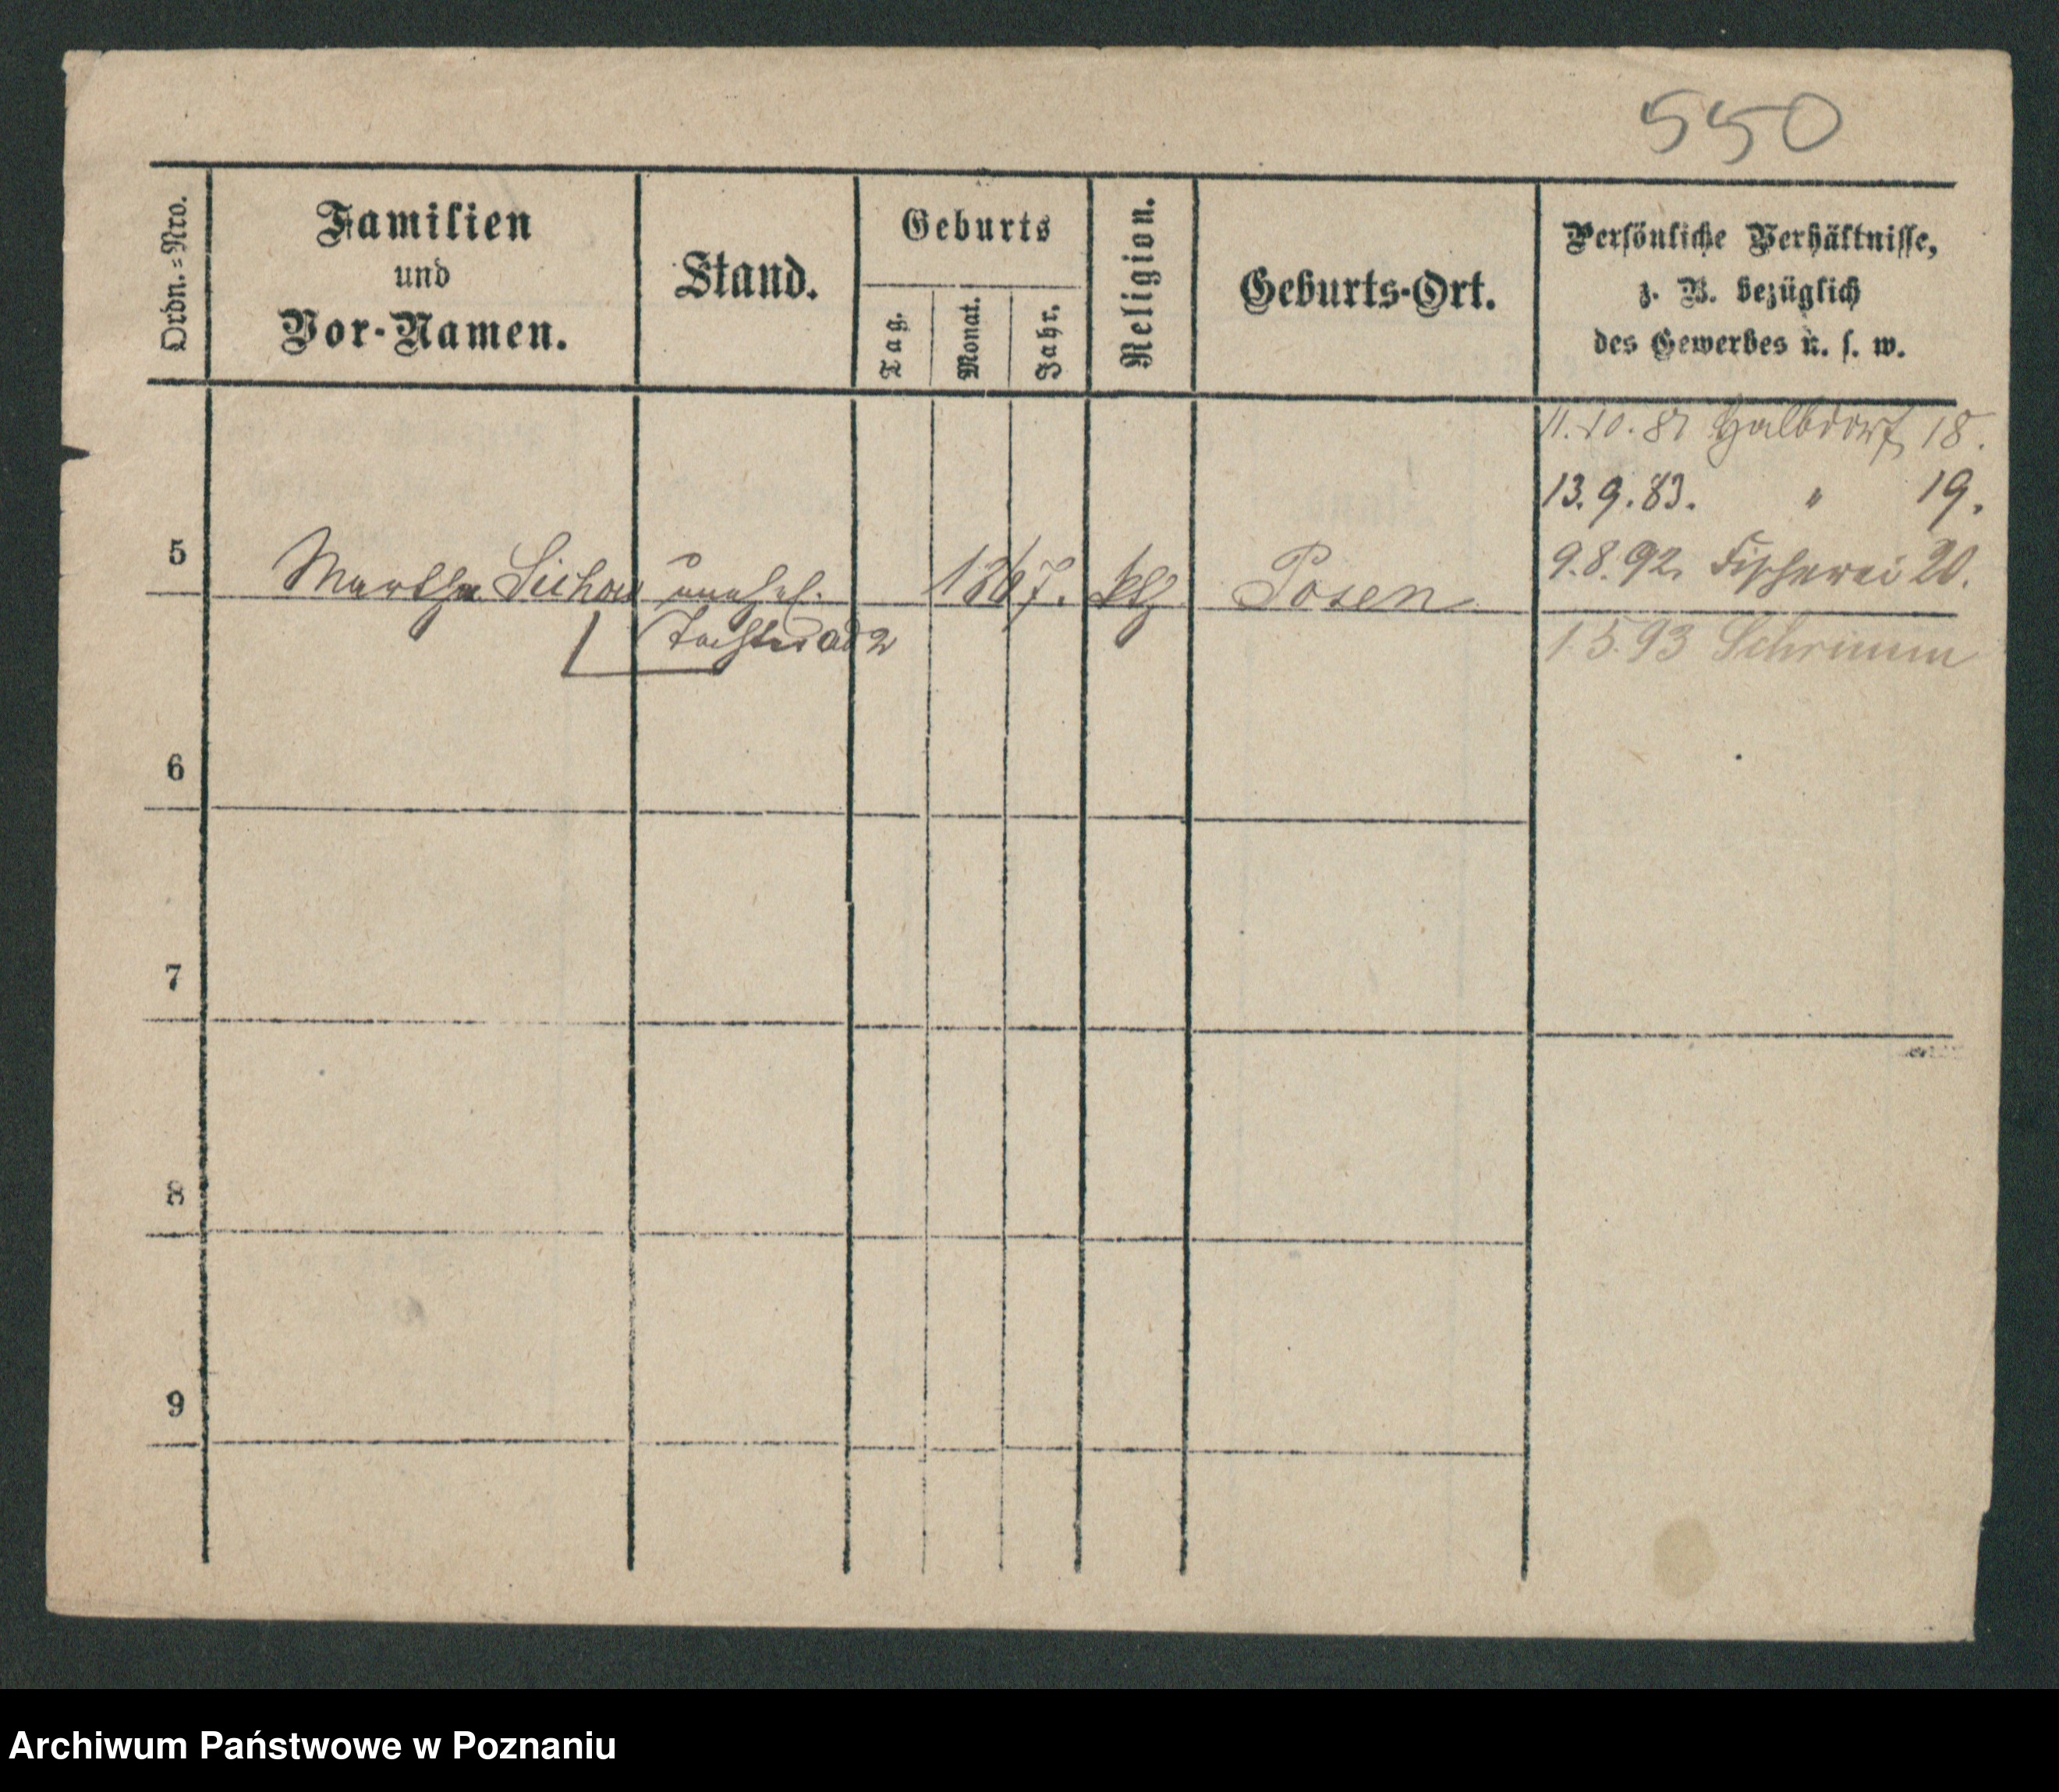 550
Ordn.=Nro.
Familien
und
Vor-Namen.
Stand.
Geburts
Tag.
Monat.
Jahr.
Religion.
Geburts-Ort.
Persönliche Verhältnisse,
z. B. bezüglich
des Gewerbes u. s. w.
11.10.81 Halbdorf 18.
13.9.83. " 19.
9.8.92. Fischerei 20.
1.5.93 Schrimm
5 Martha Sichow unehel. 1867. ktg Posen
Tochter ad 2
6
7
8
9
Archiwum Państwowe w Poznaniu